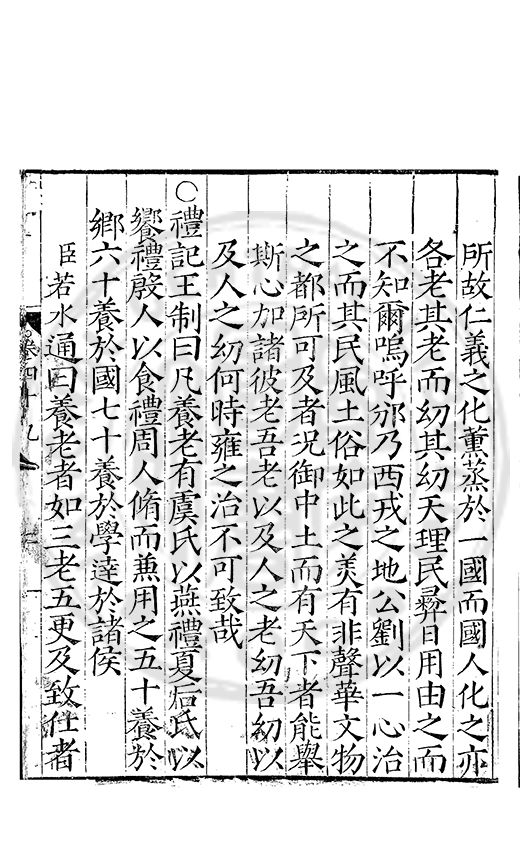 所故仁義之化薰蒸於一國而國人化之亦
各老其老而幼其幼天理民彛日用由之而
不知爾嗚呼邠乃西戎之地公劉以一心治
之而其民風土俗如此之美有非聲華文物
之都所可及者况御中土而有天下者能舉
斯心加諸彼老吾老以及人之老幼吾幼以
及人之幼何時雍之治不可致哉
○禮記王制曰凡養老有虞氏以燕禮夏后氏以
饗禮殷人以食禮周人脩而兼用之五十養於
鄉六十養於國七十養於學達於諸侯
臣若水通曰養老者如三老五更及致仕者
卷四十九